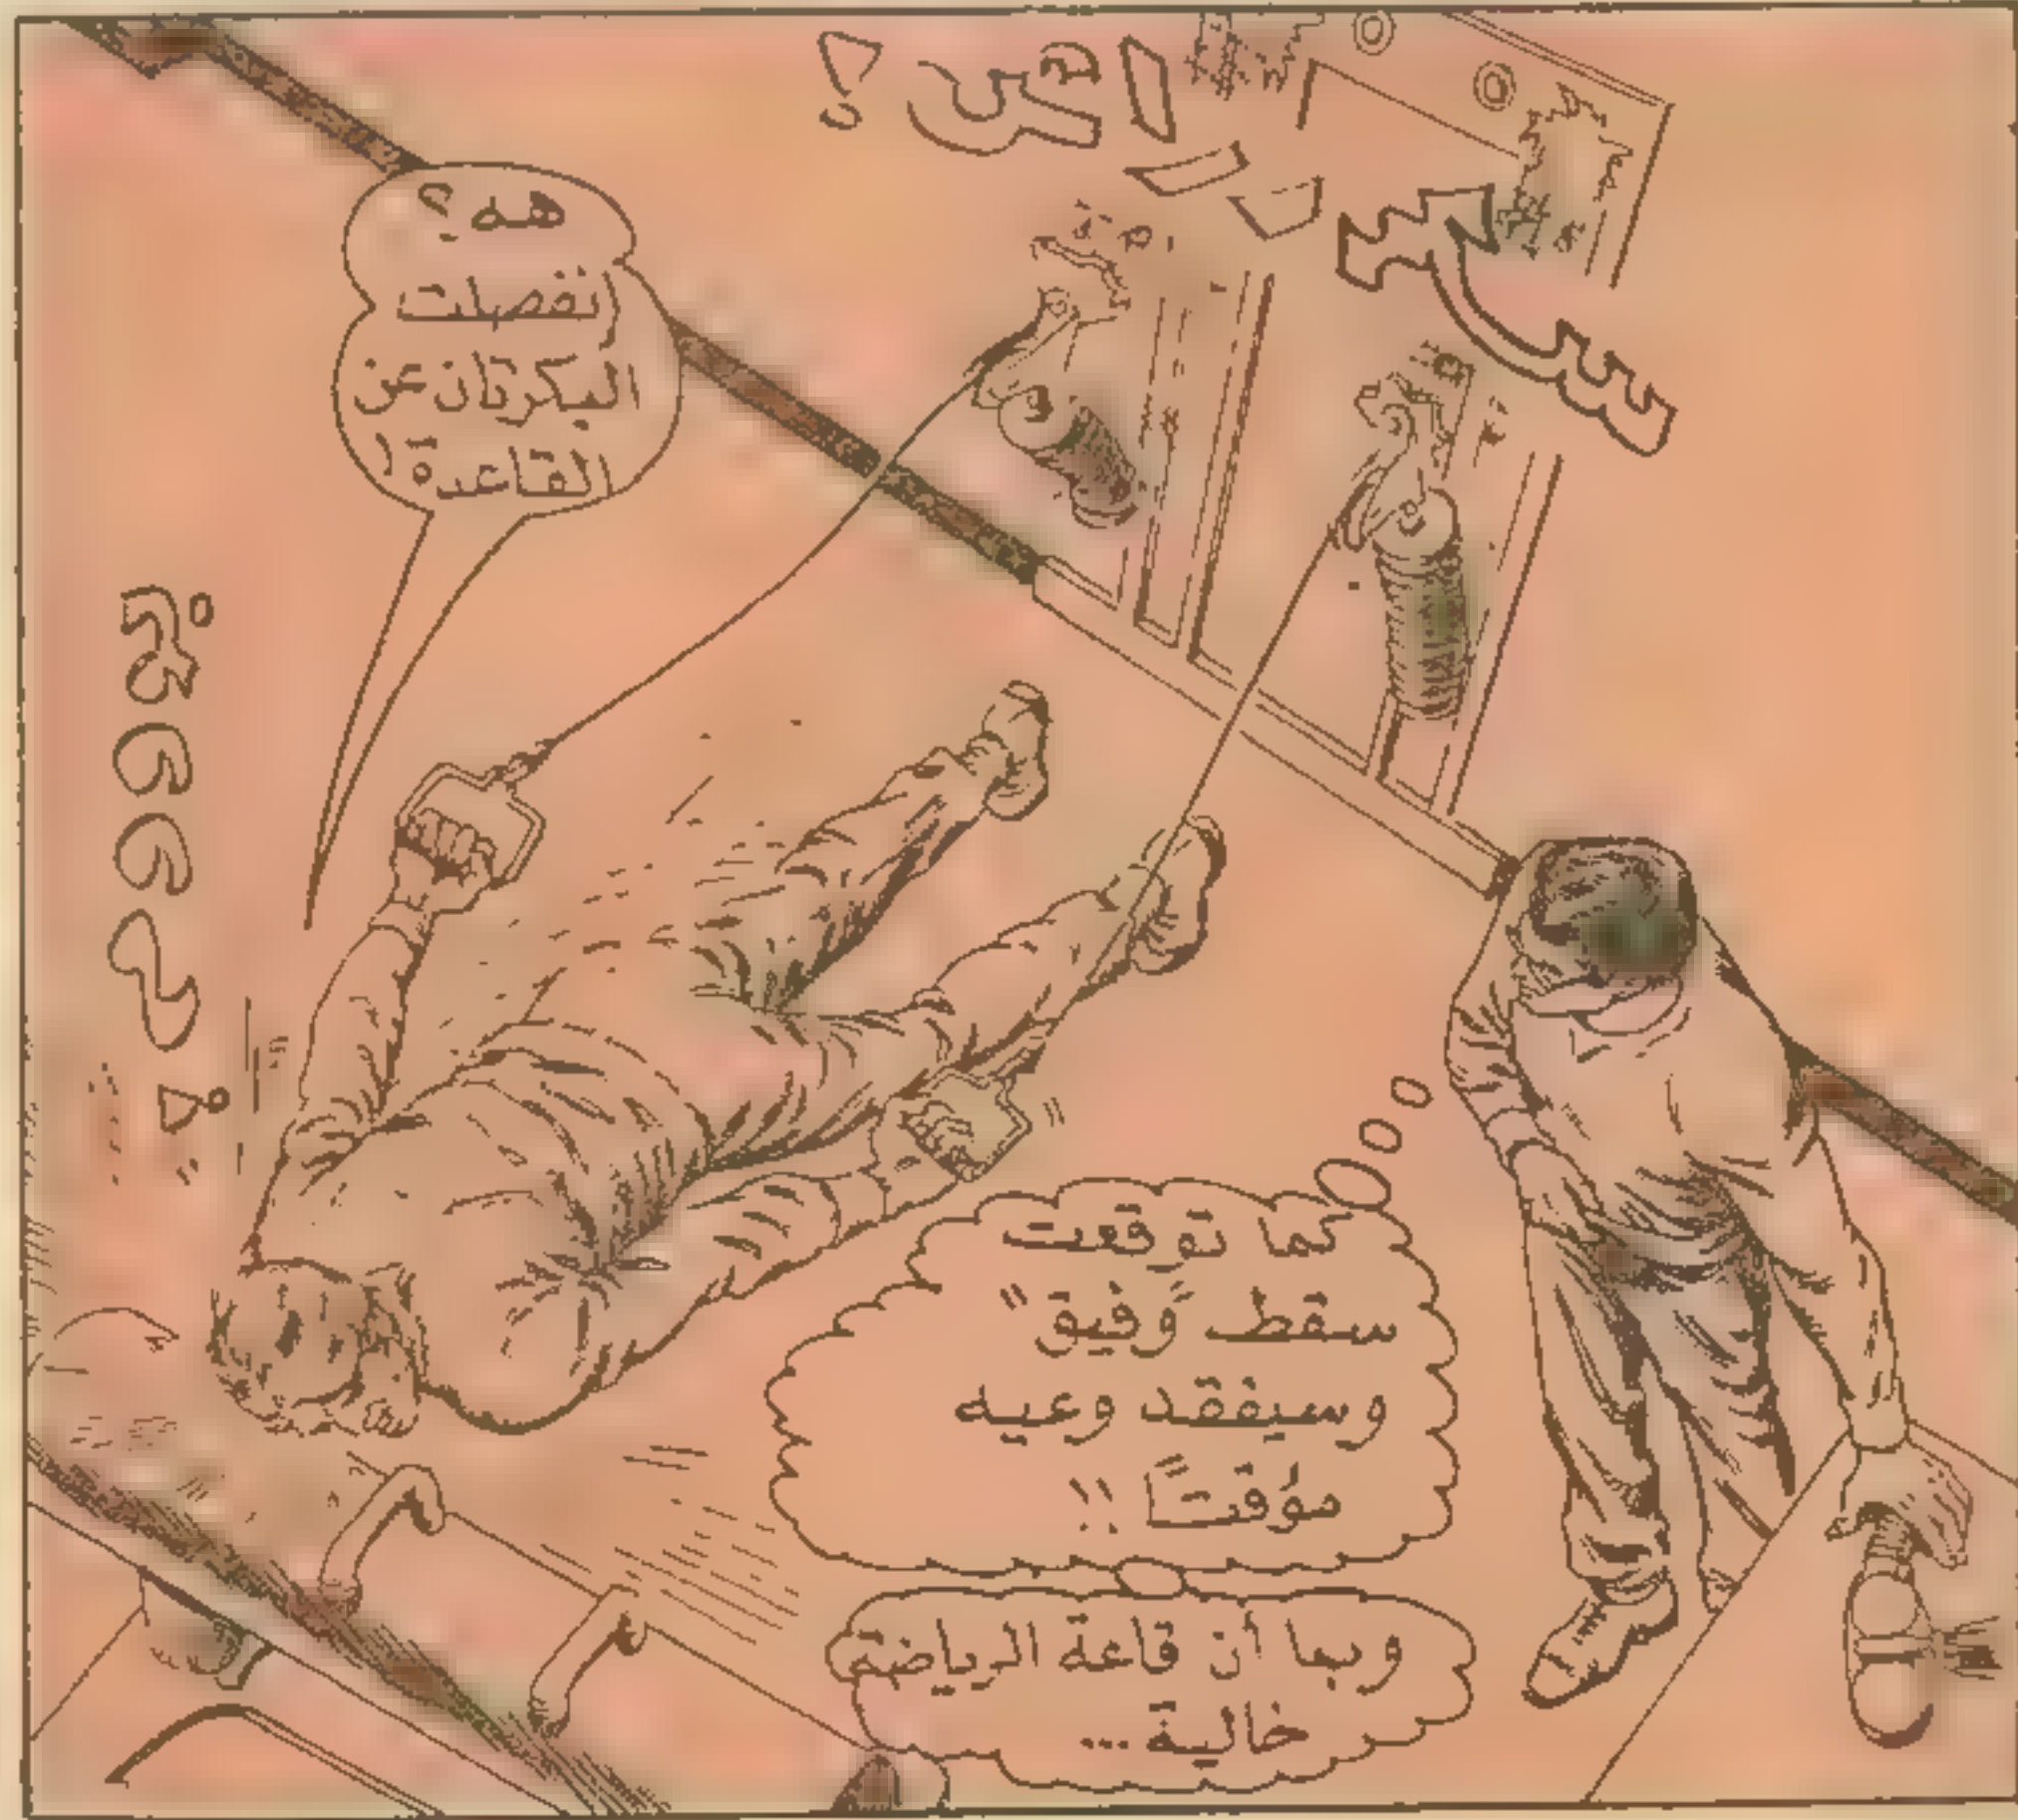 هه ؟
انفصلت
البكرتان عن
القاعدة !
كما توقعت
سقط "وفيق"
وسيفقد وعيه
مؤقتاً !!
وبما أن قاعة الرياضة
خالية ...